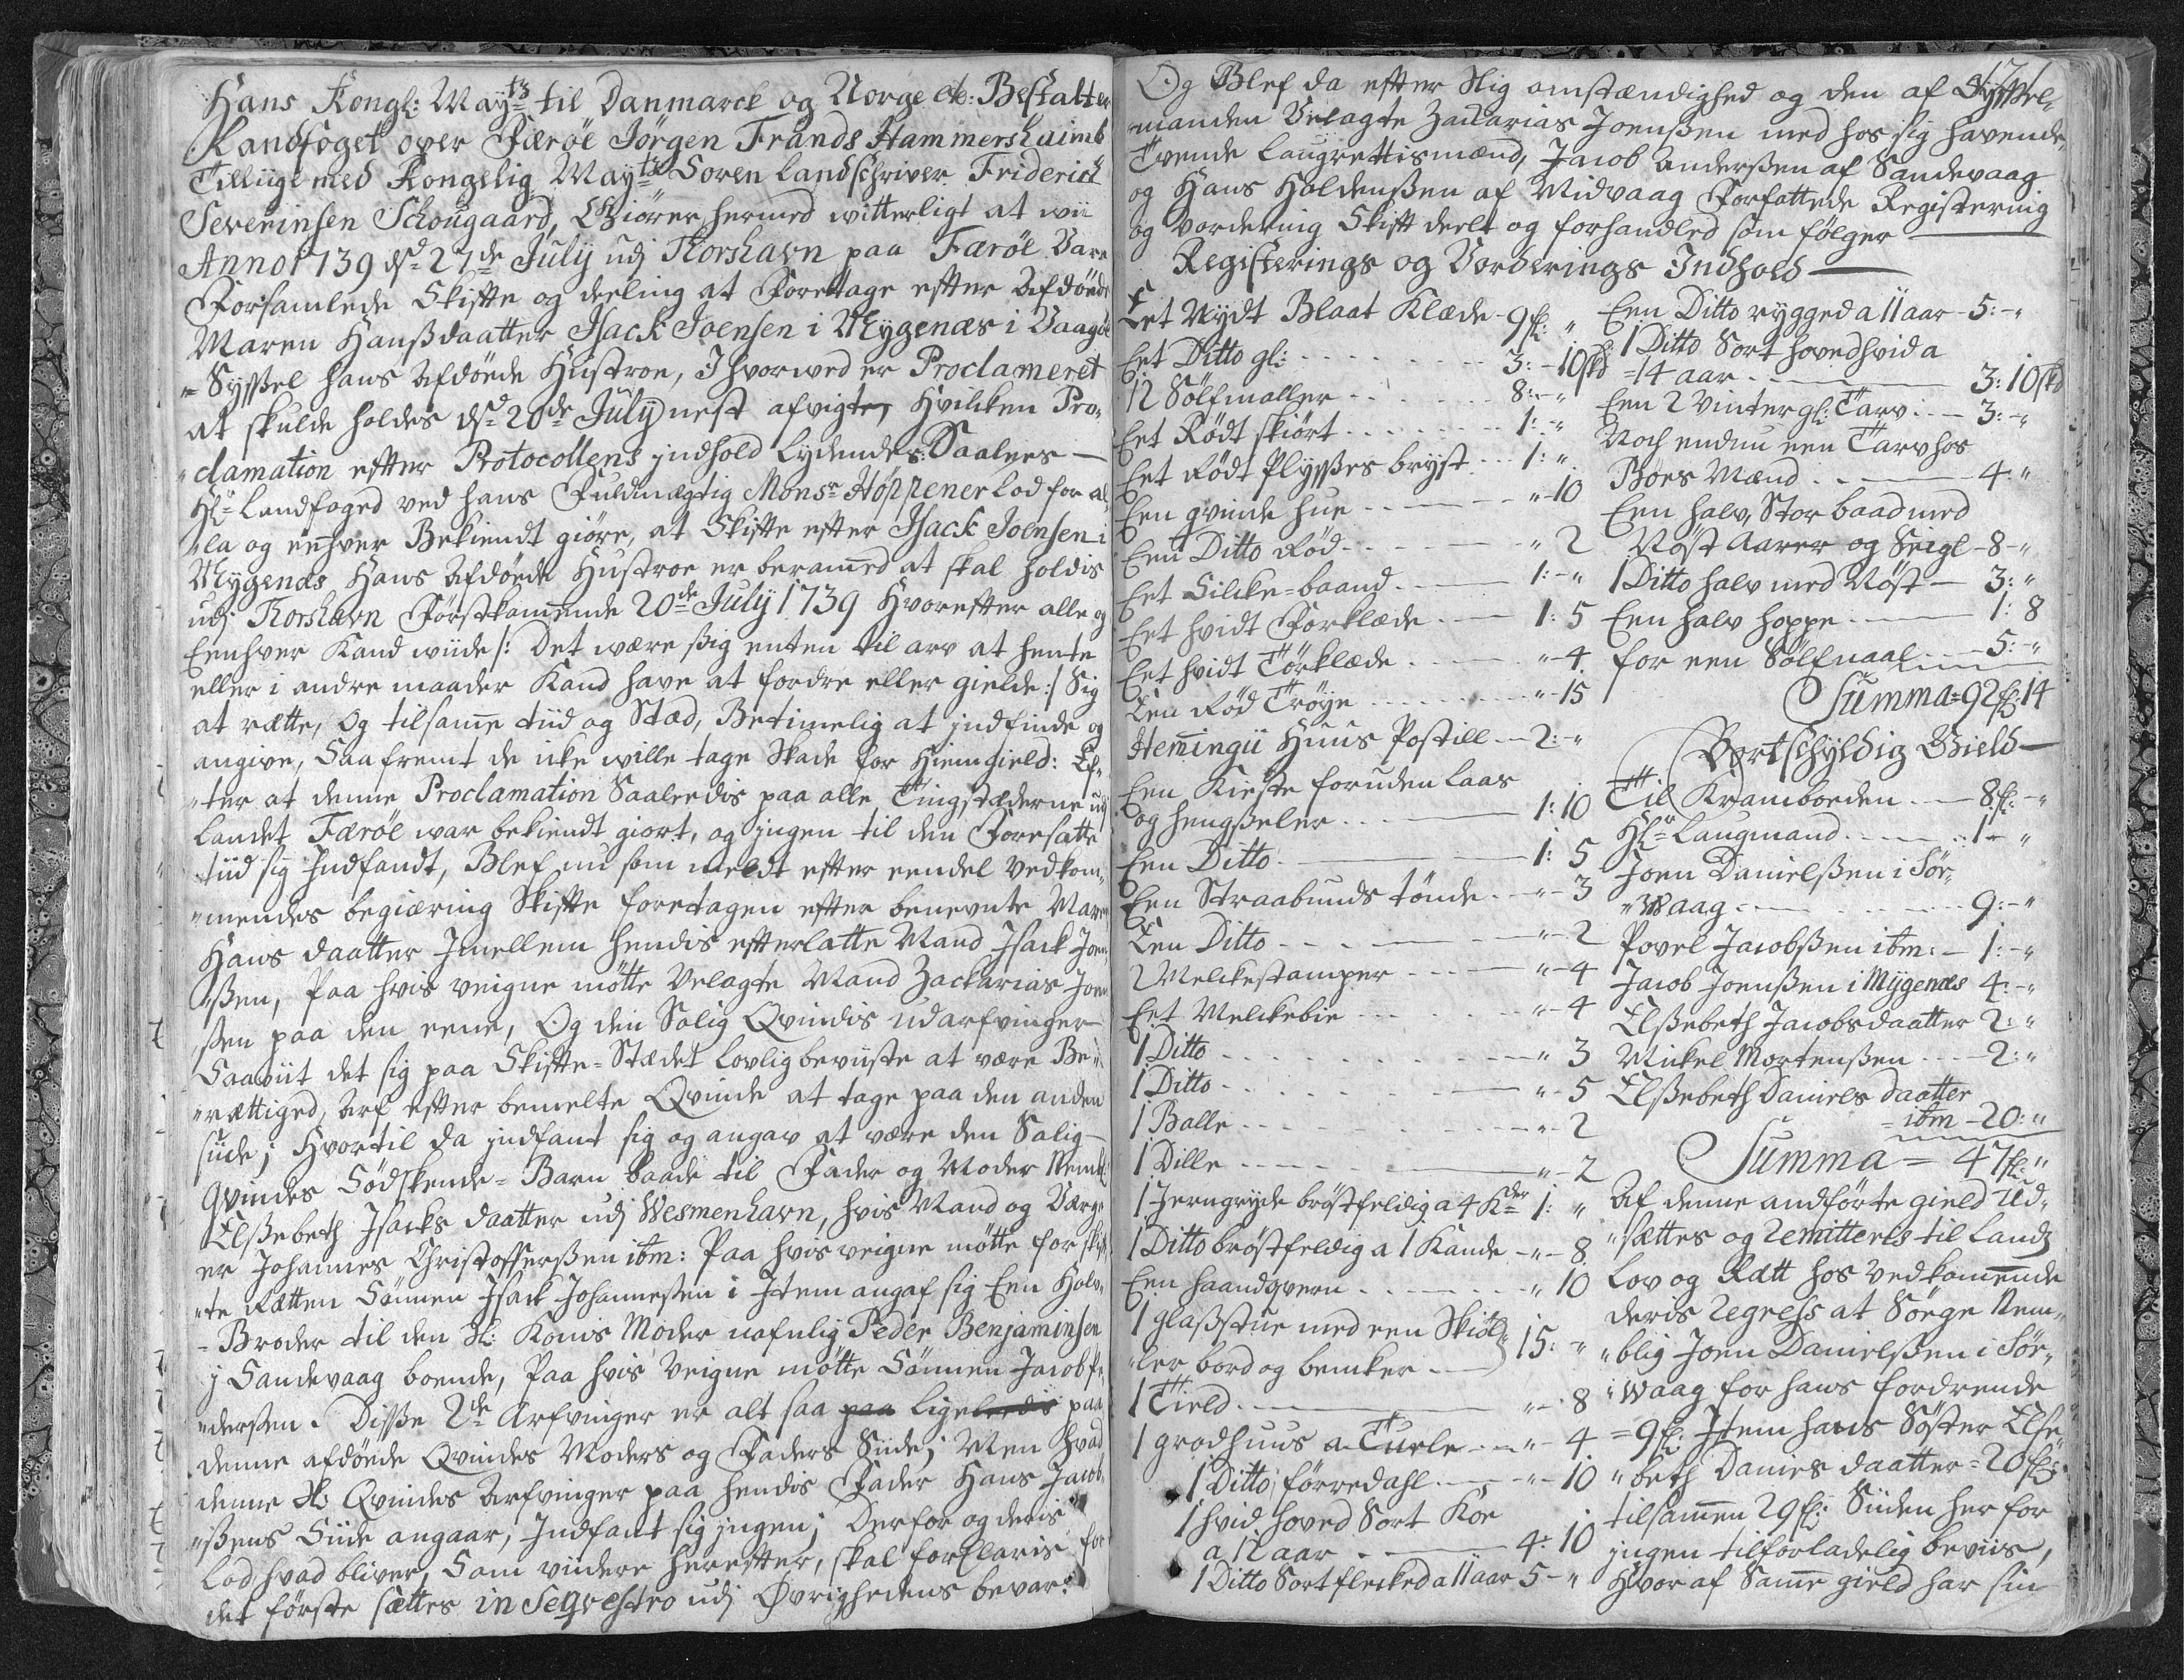 Hans Kongl: Mayts til Danmarck og Norge etc: Bestalter
Landfoget over Færöe Jörgen Frands Hammershaimb
Tilliige med Kongelig Mayts Soren landschriver Friderich
Severinsen Schougaard, Giörer hermed witterligt at wii
Anno 1739 dsd 27de July udj Thorshavn paa Færöe Vare
Forsamlede Skifte og deeling at Foretage efter Afdöede
Maren Hanßdaatter Isack Joensen i Mygenæs i Vaagöe
Syßel hans Afdöede Hustroe, I hvorved er Proclameret
at skulde holdes dsd 20de July nest afvigte, Hvilcken Pro„
„clamation efter Protocollens jndhold lydendes: Saalees —
Hr Landfoged ved hans Fuldmægtig Monsr Höppener lod for al„
„la og eenhver Bekiendt giöre, at Skifte efter Isack Joensen i
Mygenæs Hans Afdöede Hustroe er berammed at skal holdis
udj Thorshavn Förstkommende 20de July 1739 Hvorefter alle og
Eenhver Kand wiide /: Det være sig enten til arv at hente
eller i andre maader Kand have at fordre eller gielde :/ Sig
at rætte, Og til samme tiid og Stæd, Betimelig at jndfinde og
angive, Saafremt de icke wille tage Skade for Hiemgield: Ef„
„ter at denne Proclamation Saaleedis paa alle Tingstæderne udj
Landet Færöe war bekiendt giort, og jngen til den Foresatte
tiid sig Indfandt, Blef nu som meldt efter eendel vedkom„
„mendes begiæring Skifte foretagen efter benevnte Maren
Hans daatter Imellem hendis efterlatte Mand Isack Joen„
„ßen, Paa hvis veigne mötte Velagte Mand Zacharias Joen
ßen paa den eene, Og den Salig Qvindis udarfvinger
Saawiit det sig paa Skifte-Stædet lovlig beviiste at være Be„
„rættiged, Arf efter bemelte Qvinde at tage paa den anden
siide; Hvortil da jndfant sig og angav at være den Salig
Qvindes Södskende-Barn baade til Fader og Moder Nembl:
Elßebeth Isacks daatter udj Wesmenhavn, hvis Mand og Værge
er Johannes Christofferßen ibm: Paa hvis veigne mötte for skif„
„te Retten Sönnen Isack Johannesßen i Item angaf sig Een Halv„
-Broder til den Sl: Konis Moder nafnlig Peder Benjaminsen
j Sandevaag boende, Paa hvis veigne mötte Sönnen Jacob Pe„
„dersßen. Disße 2de Arfvinger er alt saa paa ligeleedis paa
denne afdöede Qvindes Moders og Faders Siide; Men hvad
denne Sl: Qvindes Arfvinger paa hendis Fader Hans Jacob„
„ßens Siide angaar, Indfant sig jngen; Derfor og deris
Lod hvad bliver, Som viidere herefter, skal forklaris for
det förste sættes in Seqvestro udj Øvrighedens bevar:
171
Og Blef da efter Slig omstændighed og den af Syßel„
manden Velagte Zacharias Joenßen med hos sig havende,
Tvende Laugrettismænd, Jacob Andersßen af Sandevaag
og Hans Holdenßen af Midvaag Forfattede Registering
og vordering Skift deelt og forhandled som fölger —
Registerings og Vorderings Indhold —
Eet Nydt Blaat Klæde - 9fl: „
Eet Ditto gl: - - - 3: - 10skd
12 Sölfmaller - - - 8: - „
Eet Rödt skiört - - - 1: - „
Eet Rödt Plyßes bryst - - 1: „
Een qvinde hue - - - „ - 10
Een Ditto Röd - - - „ 2
Eet Silcke-baand - - - 1: - „
Eet hvidt Forklæde - - 1: 5
Eet hvidt Törklæde - - „ - 4
Een Röd Tröye - - - „ - 15
Hemingii Huus Postill - 2: - „
Een Kieste foruden laas
og hengßeler - - - 1: 10
Een Ditto - - - 1: 5
Een Straabunds tönde - - „ - 3
Een Ditto - - - „ - 2
2 Melckestamper - - - „ - 4
Eet Melckebie - - - „ - 4
1 Ditto - - - „ 3
1 Ditto - - - „ - 5
1 Balle - - - „ - 2
1 Dille - - - „ - 2
1 Jerngryde bröstfeldig a 4 Kder 1: „
1 Ditto bröstfeldig a 1 Kande - „ - 8
Een haandqvern - - - „ 10
1 glaßstue med een Skiöl„
„ler bord og bencker - - } 15: - „
1 Tield - - - „ - 8
1 grodhuus a Turle - - „ - 4
1 Ditto, förredahl - - „ - 10
1 hvid hoved Sort Koe
a 12 aar - - - 4: 10
1 Ditto Sort flecked a 11 aar 5 - „
Een Ditto rygged a 11 aar - 5: - „
1 Ditto Sort hovedhvid a
14 aar - - - 3: 10skd
Een 2 Vinter gl: Tarv - - 3: - „
Noch endnu een Tarv hos
Boes Mand - - - 4: „
Een halv, Stor baad med
Nöst Aarer og Seigl - 8 - „
1 Ditto halv med Nöst - 3: „
Een halv hoppe - - - 1: 8
for een Sölfnaal - - 5: - „
Summa = 92fl: 14
Bortschyldig Gield —
Til Kramboeden - - 8fl: - „
Hr Laugmand - - - 1 - „
Joen Danielsßen i Sör„
„waag - - - 9: - „
Povel Jacobsßen ibm: - 1: - „
Jacob Joenßen i Mygenæs 4: - „
Elßebeth Jacobsdaatter 2: „
Mickel Mortensßen - - 2: „
Elßebeth Daniels daatter
= ibm - 20: „
Summa = 47fl: „
Af denne andförte gield Ud„
„sættes og Remitteres til Landz
Lov og Rætt hos vedkommende
deris Regress at Sörge Nem„
„blig Joen Danielsßen i Sör„
„waag for hans fordrende
= 9fl: Item hans Söster Else„
„beth Daniels daatter = 20fl:
tilsammen 29fl: Siiden her for
jngen tilforladelig beviis,
Hvor af Samme gield har sin